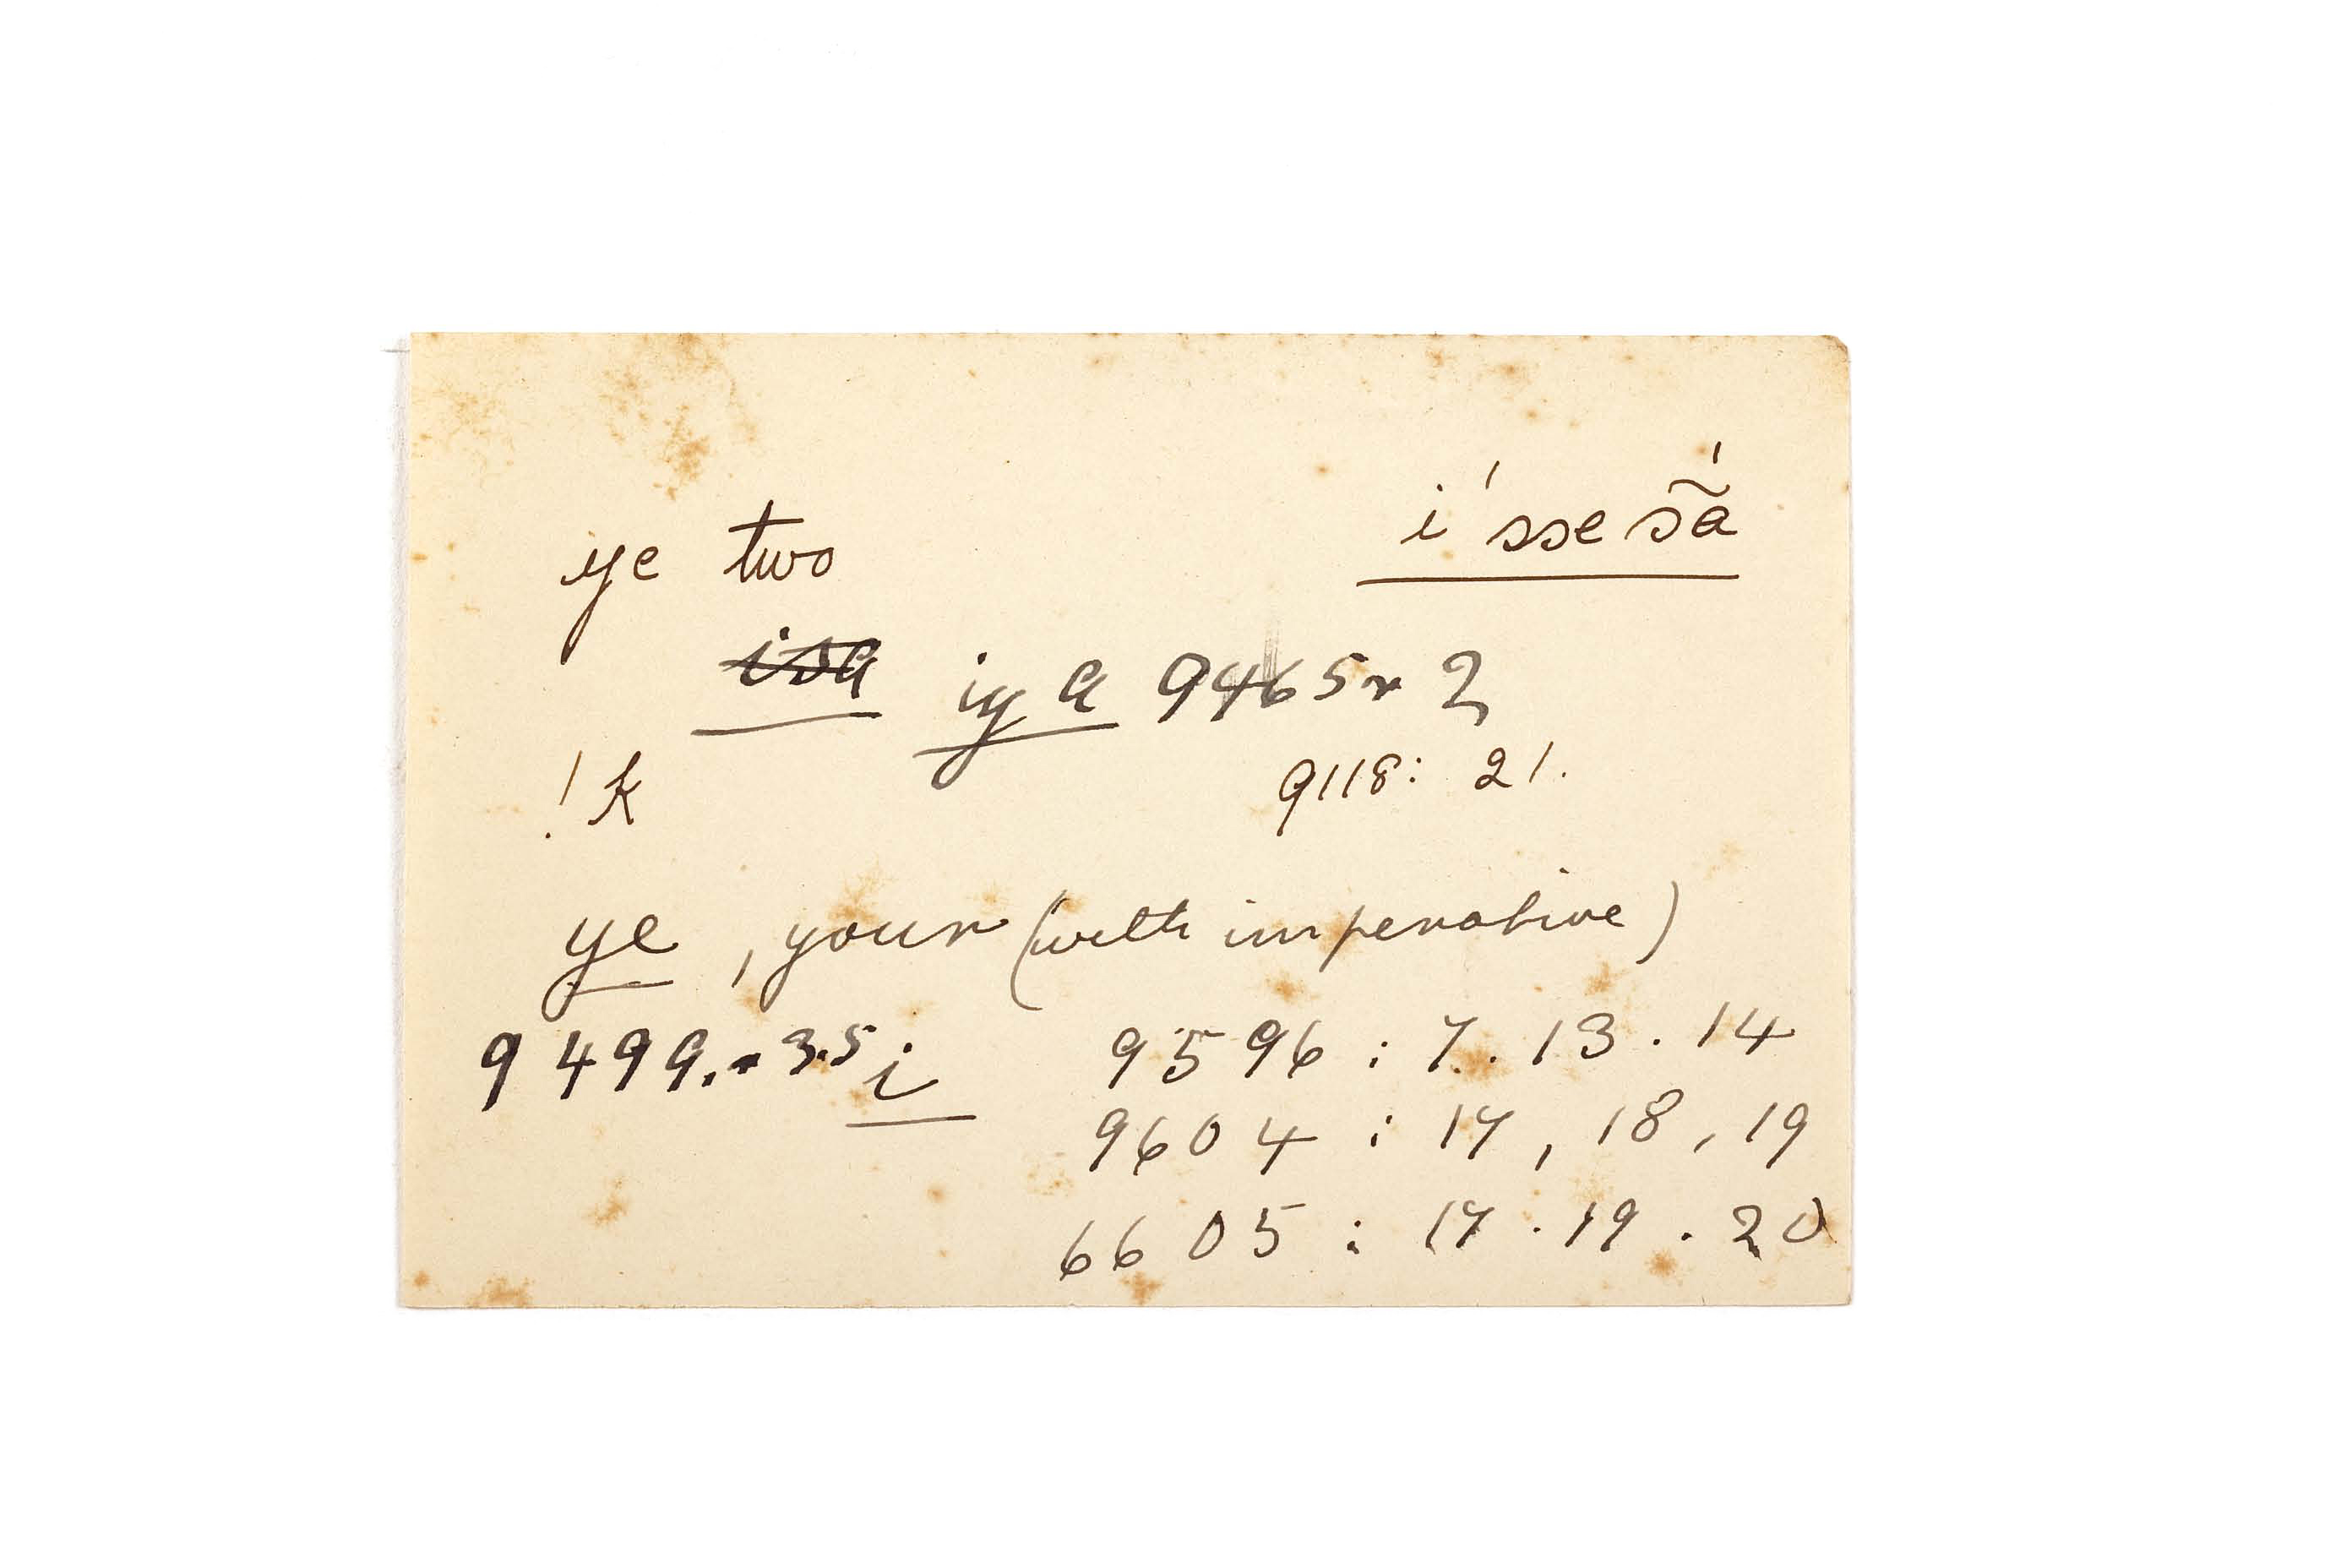 ye two i' sse sã́
isa iya 9465r 2
!k 9118: 21.
ye, your (with imperative)
9499. r 3.5 i 9596 : 7. 13. 14
9604 : 17, 18, 19
6605 : 17. 19. 20